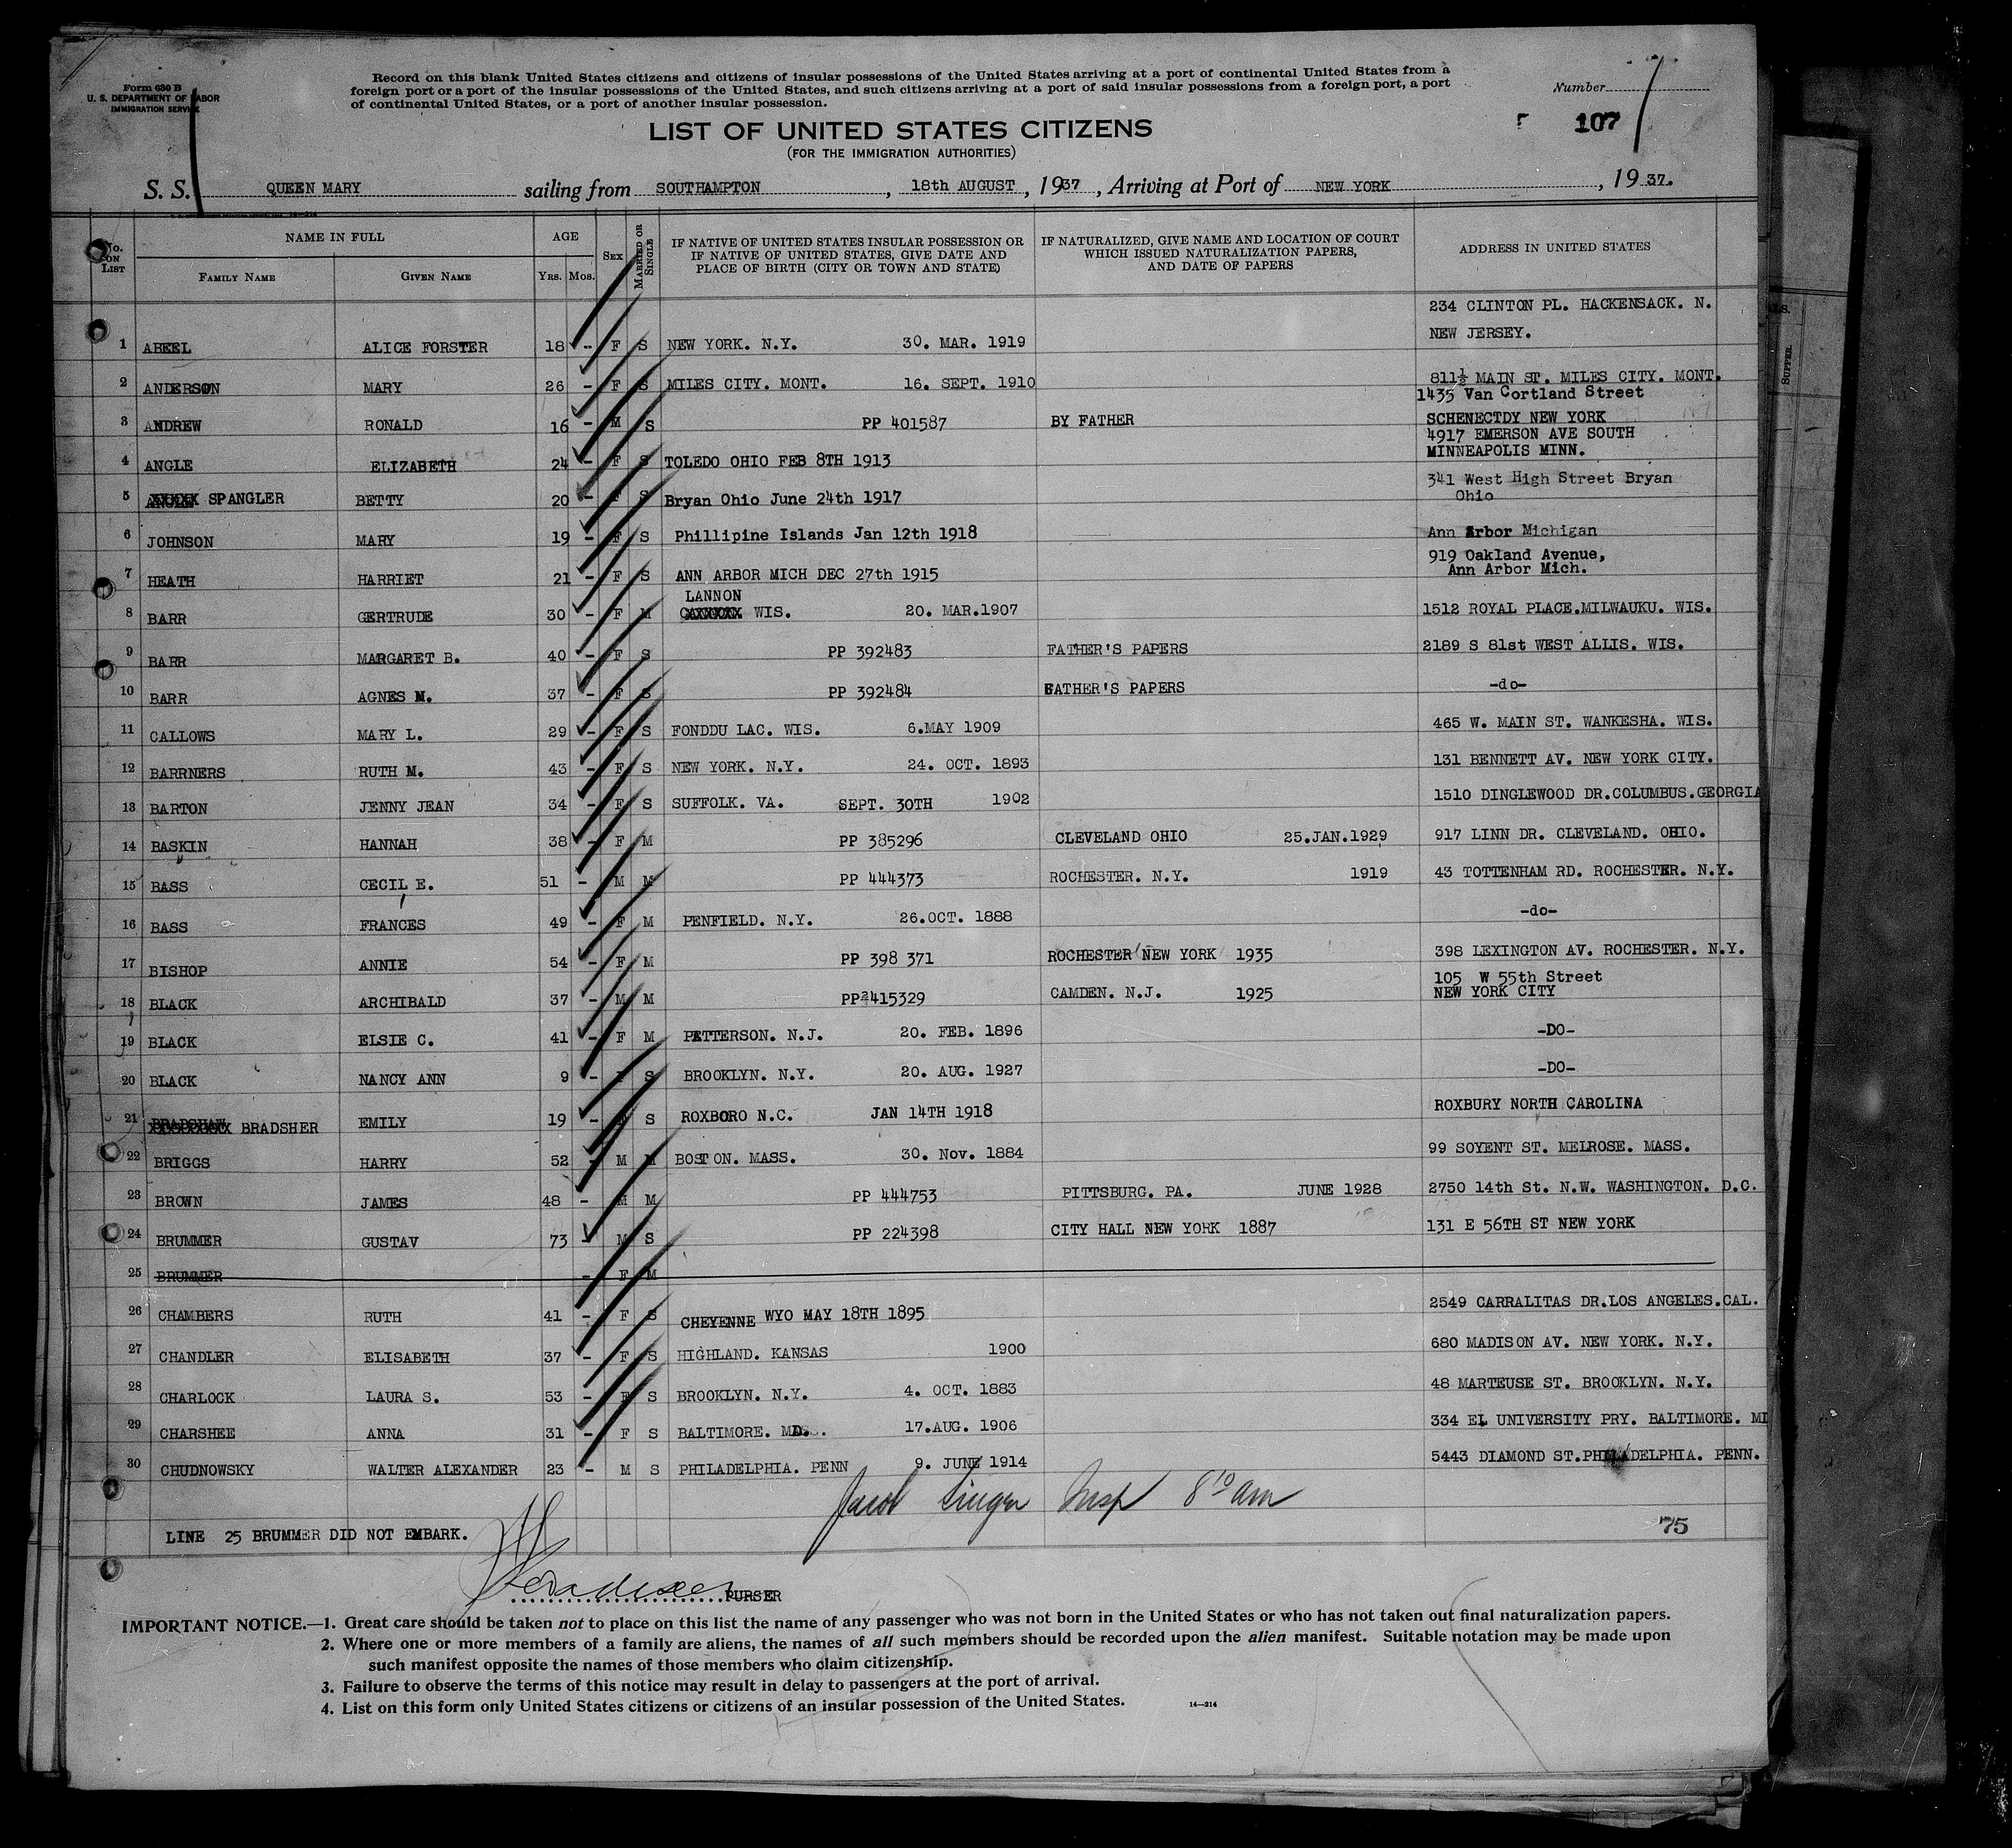 Form 630 B
U. S. DEPARTMENT OF LABOR
IMMIGRATION SERVICE
Record on this blank United States citizens and citizens of insular possessions of the United States arriving at a port of continental United States from a
foreign port or a port of the insular possessions of the United States, and such citizens arriving at a port of said insular possessions from a foreign port, a port
of continental United States, or a port of another insular possession.
Number
107
LIST OF UNITED STATES CITIZENS
(FOR THE IMMIGRATION AUTHORITIES)
S. S. QUEEN MARY sailing from SOUTHAMPTON, 18th AUGUST, 1937, Arriving at Port of NEW YORK, 1937.
No. ON LIST
NAME IN FULL
FAMILY NAME GIVEN NAME
AGE
YRS. MOS.
SEX
MARRIED OR SINGLE
IF NATIVE OF UNITED STATES INSULAR POSSESSION OR
IF NATIVE OF UNITED STATES, GIVE DATE AND
PLACE OF BIRTH (CITY OR TOWN AND STATE)
IF NATURALIZED, GIVE NAME AND LOCATION OF COURT
WHICH ISSUED NATURALIZATION PAPERS,
AND DATE OF PAPERS
ADDRESS IN UNITED STATES
SUPPER.
234 CLINTON PL. HACKENSACK. N.
NEW JERSEY.
1 ABEEL ALICE FORSTER 18 - F S NEW YORK. N.Y. 30. MAR. 1919
2 ANDERSON MARY 26 - F S MILES CITY. MONT. 16. SEPT. 1910 811½ MAIN ST. MILES CITY. MONT.
1435 Van Cortland Street
3 ANDREW RONALD 16 - M S PP 401587 BY FATHER SCHENECTDY NEW YORK
4917 EMERSON AVE SOUTH
4 ANGLE ELIZABETH 24 - F S TOLEDO OHIO FEB 8TH 1913 MINNEAPOLIS MINN.
5 XXXXX SPANGLER BETTY 20 - F S Bryan Ohio June 24th 1917 341 West High Street Bryan
Ohio
6 JOHNSON MARY 19 - F S Phillipine Islands Jan 12th 1918 Ann Arbor Michigan
919 Oakland Avenue,
7 HEATH HARRIET 21 - F S ANN ARBOR MICH DEC 27th 1915 Ann Arbor Mich.
LANNON
8 BARR GERTRUDE 30 - F M CXXXXXX WIS. 20. MAR.1907 1512 ROYAL PLACE.MILWAUKU. WIS.
9 BARR MARGARET B. 40 - F S PP 392483 FATHER'S PAPERS 2189 S 81st WEST ALLIS. WIS.
10 BARR AGNES M. 37 - F S PP 392484 FATHER'S PAPERS -do-
11 CALLOWS MARY L. 29 - F S FONDDU LAC. WIS. 6.MAY 1909 465 W. MAIN ST. WANKESHA. WIS.
12 BARRNERS RUTH M. 43 - F S NEW YORK. N.Y. 24. OCT. 1893 131 BENNETT AV. NEW YORK CITY.
13 BARTON JENNY JEAN 34 - F S SUFFOLK. VA. SEPT. 30TH 1902 1510 DINGLEWOOD DR.COLUMBUS.GEORGIA
14 BASKIN HANNAH 38 - F M PP 385296 CLEVELAND OHIO 25.JAN.1929 917 LINN DR. CLEVELAND. OHIO.
15 BASS CECIL E. 51 - M M PP 444373 ROCHESTER. N.Y. 1919 43 TOTTENHAM RD. ROCHESTER. N.Y.
16 BASS FRANCES 49 - F M PENFIELD. N.Y. 26.OCT. 1888 -do-
17 BISHOP ANNIE 54 - F M PP 398 371 ROCHESTER NEW YORK 1935 398 LEXINGTON AV. ROCHESTER. N.Y.
105 W 55th Street
18 BLACK ARCHIBALD 37 - M M PP 415329 CAMDEN. N.J. 1925 NEW YORK CITY
19 BLACK ELSIE C. 41 - F M PATTERSON. N.J. 20. FEB. 1896 -DO-
20 BLACK NANCY ANN 9 - F S BROOKLYN. N.Y. 20. AUG. 1927 -DO-
21 BRADSHAW BRADSHER EMILY 19 - S ROXBORO N.C. JAN 14TH 1918 ROXBURY NORTH CAROLINA
22 BRIGGS HARRY 52 - M M BOSTON. MASS. 30. Nov. 1884 99 SOYENT ST. MELROSE. MASS.
23 BROWN JAMES 48 - M M PP 444753 PITTSBURG. PA. JUNE 1928 2750 14th St. N.W. WASHINGTON. D.C.
24 BRUMMER GUSTAV 73 - M S PP 224398 CITY HALL NEW YORK 1887 131 E 56TH ST NEW YORK
25 BRUMMER - F M
26 CHAMBERS RUTH 41 - F S CHEYENNE WYO MAY 18TH 1895 2549 CARRALITAS DR.LOS ANGELES.CAL.
27 CHANDLER ELISABETH 37 - F S HIGHLAND. KANSAS 1900 680 MADISON AV. NEW YORK. N.Y.
28 CHARLOCK LAURA S. 53 - F S BROOKLYN. N.Y. 4. OCT. 1883 48 MARTEUSE ST. BROOKLYN. N.Y.
29 CHARSHEE ANNA 31 - F S BALTIMORE. MD. 17.AUG. 1906 334 EL UNIVERSITY PRY. BALTIMORE. MD
30 CHUDNOWSKY WALTER ALEXANDER 23 - M S PHILADELPHIA. PENN 9. JUNE 1914 5443 DIAMOND ST.PHILADELPHIA. PENN.
Jacob Singer Insp 8 10 am
LINE 25 BRUMMER DID NOT EMBARK.
75
PURSER
IMPORTANT NOTICE.—1. Great care should be taken not to place on this list the name of any passenger who was not born in the United States or who has not taken out final naturalization papers.
2. Where one or more members of a family are aliens, the names of all such members should be recorded upon the alien manifest. Suitable notation may be made upon
such manifest opposite the names of those members who claim citizenship.
3. Failure to observe the terms of this notice may result in delay to passengers at the port of arrival.
4. List on this form only United States citizens or citizens of an insular possession of the United States.
14—214